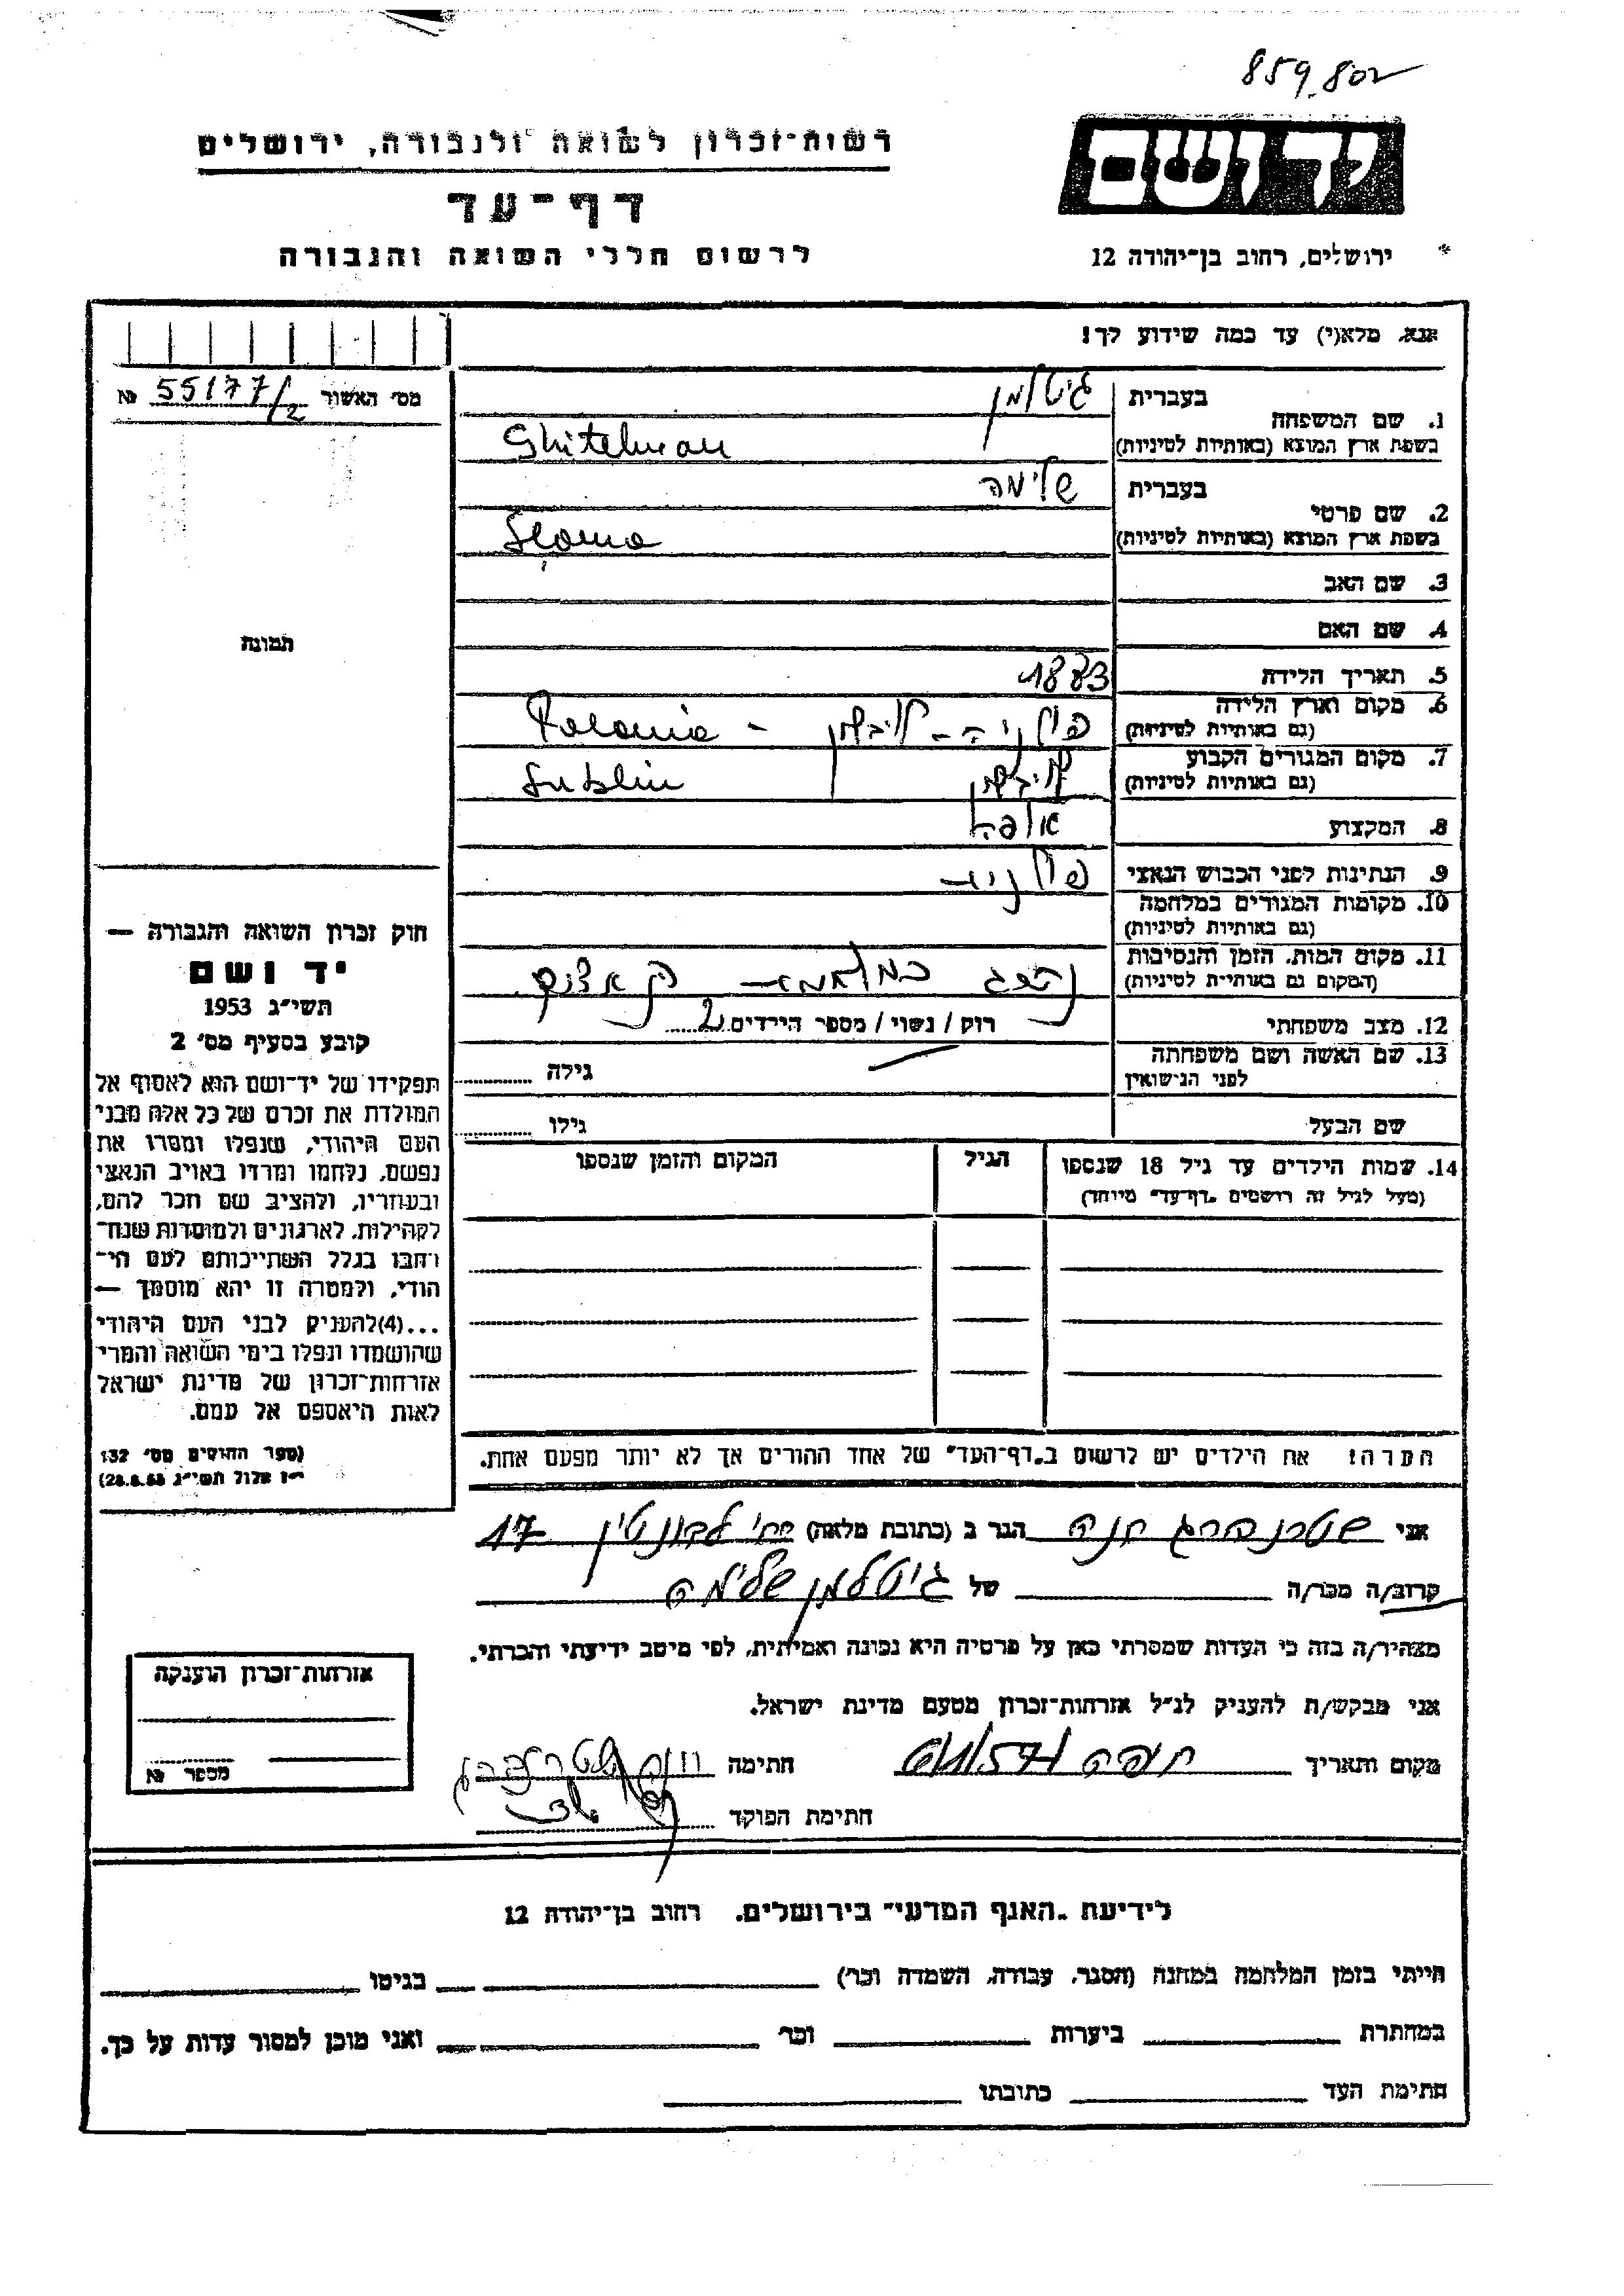 859.802
רשות־זכרון לשואה ולגבורה, ירושלים
דף־עד
לרשום חללי השואה והגבורה
יד ושם
ירושלים, רחוב בן־יהודה 12
אנא, מלא(י) עד כמה שידוע לך!
מס׳ האשור 55177/2 №
1. שם המשפחה
בעברית גיטלמן
בשפת ארץ המוצא (באותיות לטיניות) Ghitelman
2. שם פרטי
בעברית שלימה
בשפת ארץ המוצא (באותיות לטיניות) Şloma
3. שם האב
4. שם האם
תמונה
5. תאריך הלידה 1883
6. מקום וארץ הלידה
(גם באותיות לטיניות) פולניה - לובלין - Polonia
7. מקום המגורים הקבוע
(גם באותיות לטיניות) לובלין Lublin
8. המקצוע אופה
9. הנתינות לפני הכבוש הנאצי פולניה
10. מקומות המגורים במלחמה
(גם באותיות לטיניות)
11. מקום המות, הזמן והנסיבות
(המקום גם באותיות לטיניות) נהרג במלחמה
12. מצב משפחתי רווק / נשוי / מספר הילדים 2
13. שם האשה ושם משפחתה
לפני הנישואין
גילה
שם הבעל גילו
14. שמות הילדים עד גיל 18 שנספו
(מעל לגיל זה רושמים „דף־עד״ מיוחד)
הגיל
המקום והזמן שנספו
הערה! את הילדים יש לרשום ב„דף־העד״ של אחד ההורים אך לא יותר מפעם אחת.
חוק זכרון השואה והגבורה —
יד ושם
תשי״ג 1953
קובע בסעיף מס׳ 2
תפקידו של יד־ושם הוא לאסוף אל
המולדת את זכרם של כל אלה מבני
העם היהודי, שנפלו ומסרו את
נפשם, נלחמו ומרדו באויב הנאצי
ובעוזריו, ולהציב שם וזכר להם,
לקהילות, לארגונים ולמוסדות שנח־
רבו בגלל השתייכותם לעם הי־
הודי, ולמטרה זו יהא מוסמך —
...(4)להעניק לבני העם היהודי
שהושמדו ונפלו בימי השואה והמרי
אזרחות־זכרון של מדינת ישראל
לאות היאספם אל עמם.
(ספר החוקים מס׳ 132
י״ז אלול תשי״ג 28.8.53)
אני שטרנברג חנה הגר ב (כתובת מלאה) רח׳ לבונטין 17
קרוב/ה מכר/ה של גיטלמן שלימה
מצהיר/ה בזה כי העדות שמסרתי כאן על פרטיה היא נכונה ואמיתית, לפי מיטב ידיעתי והכרתי.
אני מבקש/ת להעניק לנ״ל אזרחות־זכרון מטעם מדינת ישראל.
מקום ותאריך חיפה
חתימה חנה שטרנברג
חתימת הפוקד
אזרחות־זכרון הוענקה
מספר №
לידיעת „האגף המדעי״ בירושלים. רחוב בן־יהודה 12
הייתי בזמן המלחמה במחנה (הסגר, עבודה, השמדה וכו׳) בגיטו
במחתרת ביערות וכו׳ ואני מוכן למסור עדות על כך.
חתימת העד כתובתו